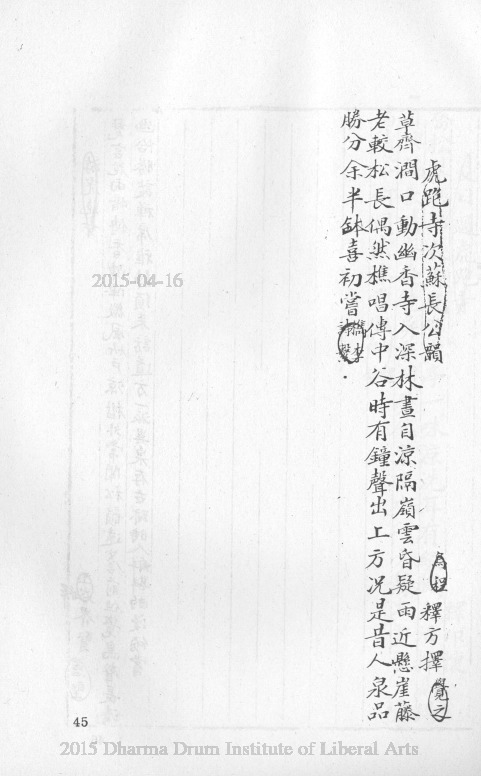 虎跑寺次蘇長公韻 烏程 釋方擇 覺之
草齊澗口動幽香寺入深林晝自涼隔嶺雲昏疑雨近懸崖藤
老較松長偶然樵唱傳中谷時有鐘聲出上方況是昔人泉品
勝分余半缽喜初嘗
2015-04-16
45
2015 Dharma Drum Institute of Liberal Arts